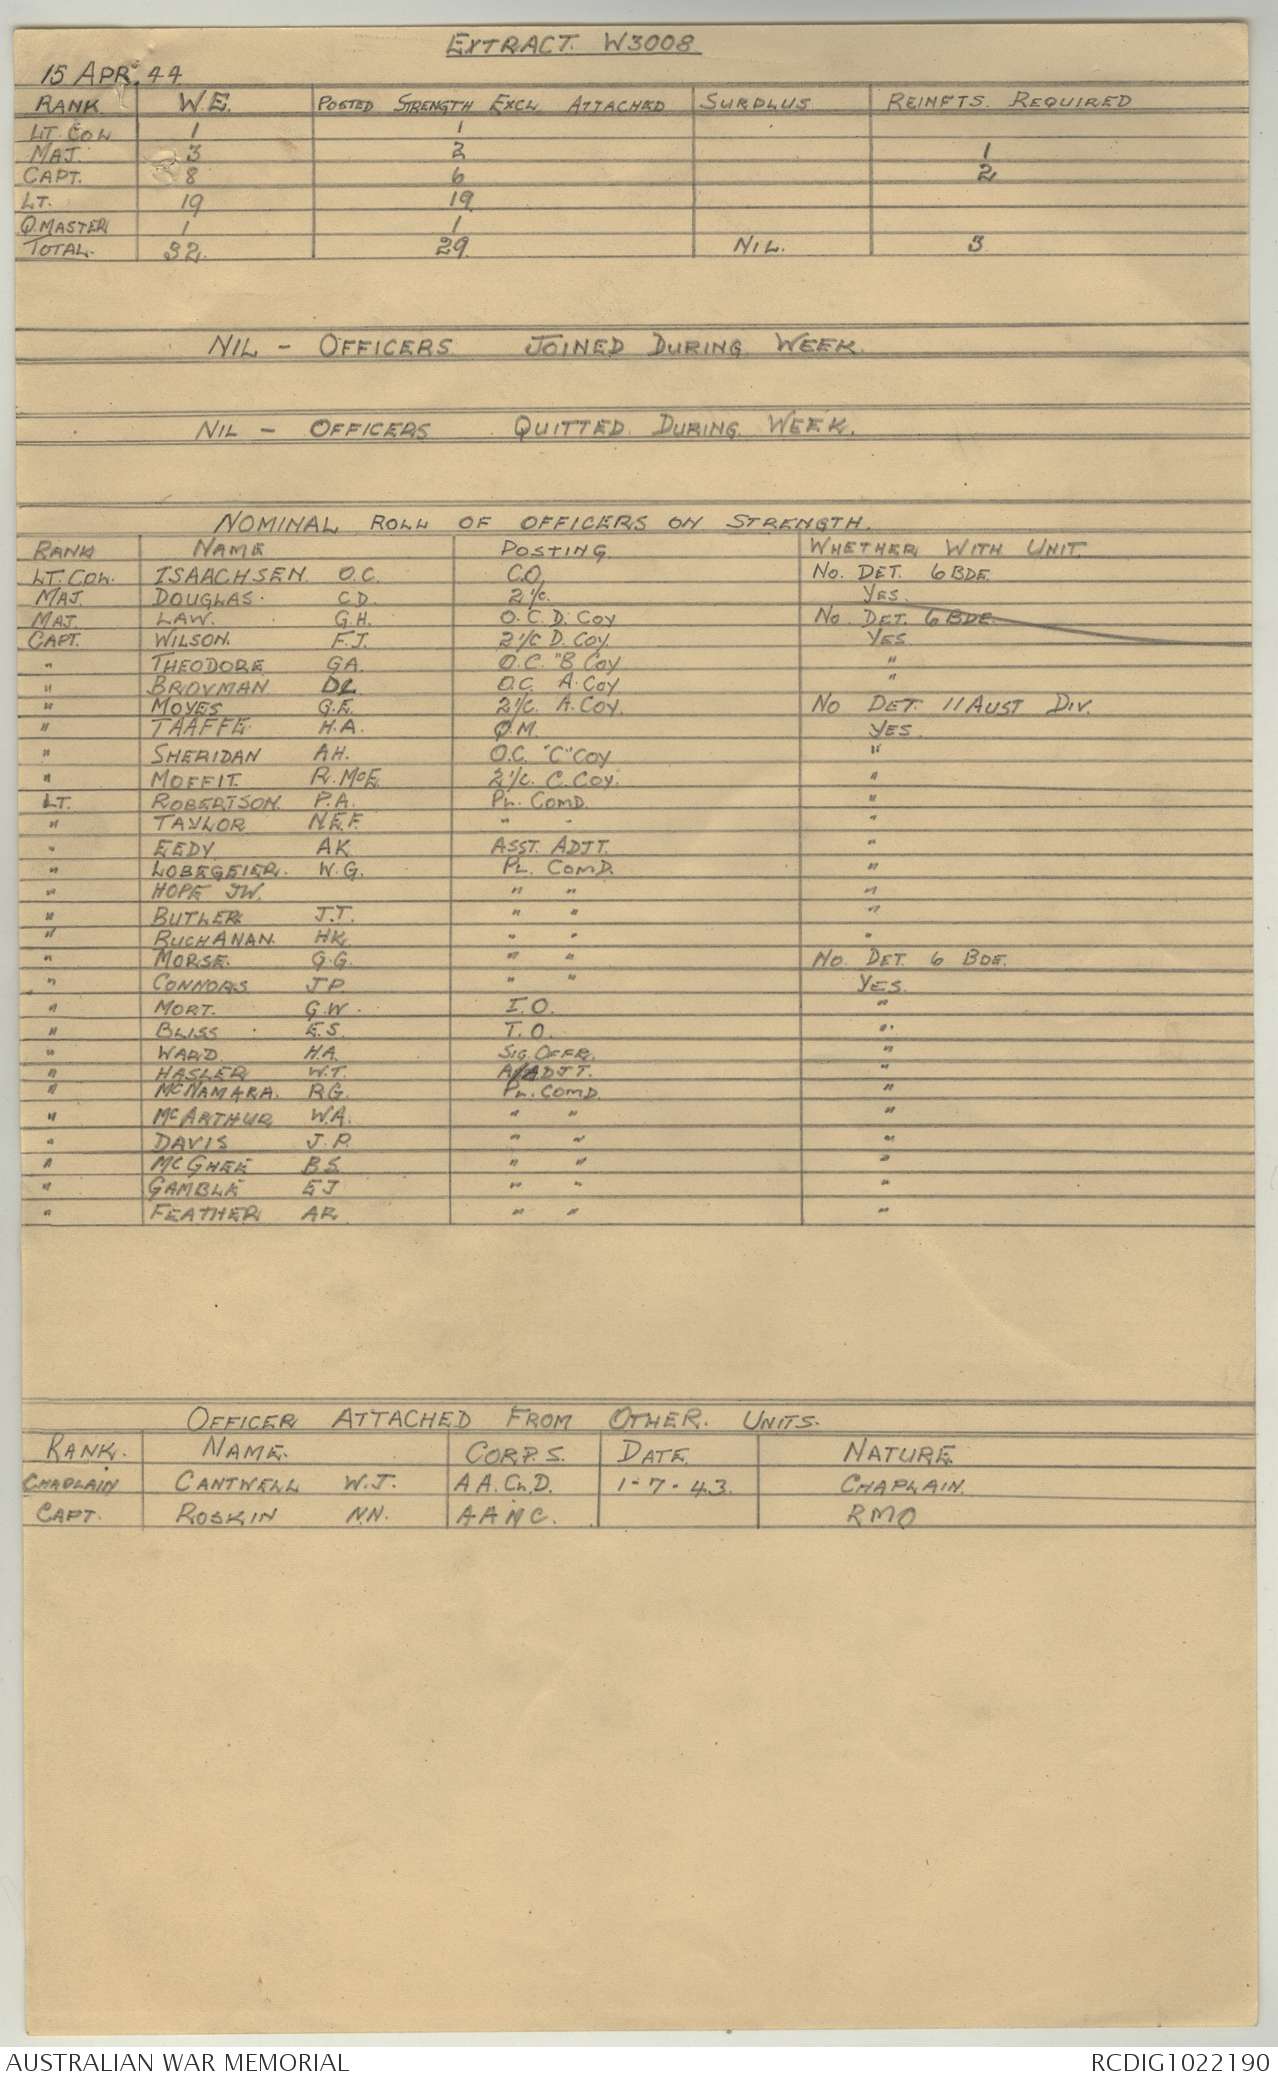 EXTRACT. W3008
15 APR. 44
RANK W.E. POSTED STRENGTH EXCL ATTACHED SURPLUS REINFTS. REQUIRED
LT. COL 1 1
MAJ. 3 2 1
CAPT. 8 6 2
LT. 19 19
Q.MASTER 1 1
TOTAL. 32. 29. NIL. 3
NIL - OFFICERS JOINED DURING WEEK.
NIL - OFFICERS QUITTED DURING WEEK.
NOMINAL ROLL OF OFFICERS ON STRENGTH.
RANK NAME POSTING. WHETHER WITH UNIT.
LT. COL. ISAACHSEN. O.C. C.O, NO. DET. 6 BDE.
MAJ. DOUGLAS. C.D. 2 i/c. YES.
MAJ. LAW. G.H. O.C. D. COY NO DET. 6 BDE.
CAPT. WILSON. F.J. 2 i/c D. COY. YES
" THEODORE GA. O.C. "B COY "
" BROVMAN DL O.C. A. COY "
" MOYES G.E. 2 i/c. A. COY. NO DET. 11 AUST DIV.
" TAAFFE. H.A. Q.M. YES.
" SHERIDAN AH. O.C. "C" COY "
" MOFFIT. R. McE. 2 i/c. C. COY. "
LT. ROBERTSON. P.A. PL. COMD. "
" TAYLOR N.E.F. " " "
" EEDY AK ASST. ADJT. "
" LOBEGEIER. W.G. PL. COMD. "
" HOPE J.W. " " "
" BUTLER J.T. " " "
" BUCHANAN. HK. " " "
" MORSE. G.G. " " NO. DET. 6 BDE.
" CONNORS J.P. " " YES.
" MORT. G.W. I.O. "
" BLISS E.S. T.O. "
" WARD. H.A. SIG. OFFR. "
" HASLER W.T. A/ADJT. "
" McNAMARA. RG. PL. COMD. "
" McARTHUR W.A. " " "
" DAVIS J.P. " " "
" McGHEE B.S. " " "
" GAMBLE EJ " " "
" FEATHER AR " " "
OFFICER ATTACHED FROM OTHER. UNITS.
RANK. NAME. CORPS. DATE. NATURE.
CHAPLAIN CANTWELL W.J. A A. Ch. D. 1-7-43. CHAPLAIN.
CAPT. ROSKIN N.N. A A M C. RMO
AUSTRALIAN WAR MEMORIAL RCDIG1022190